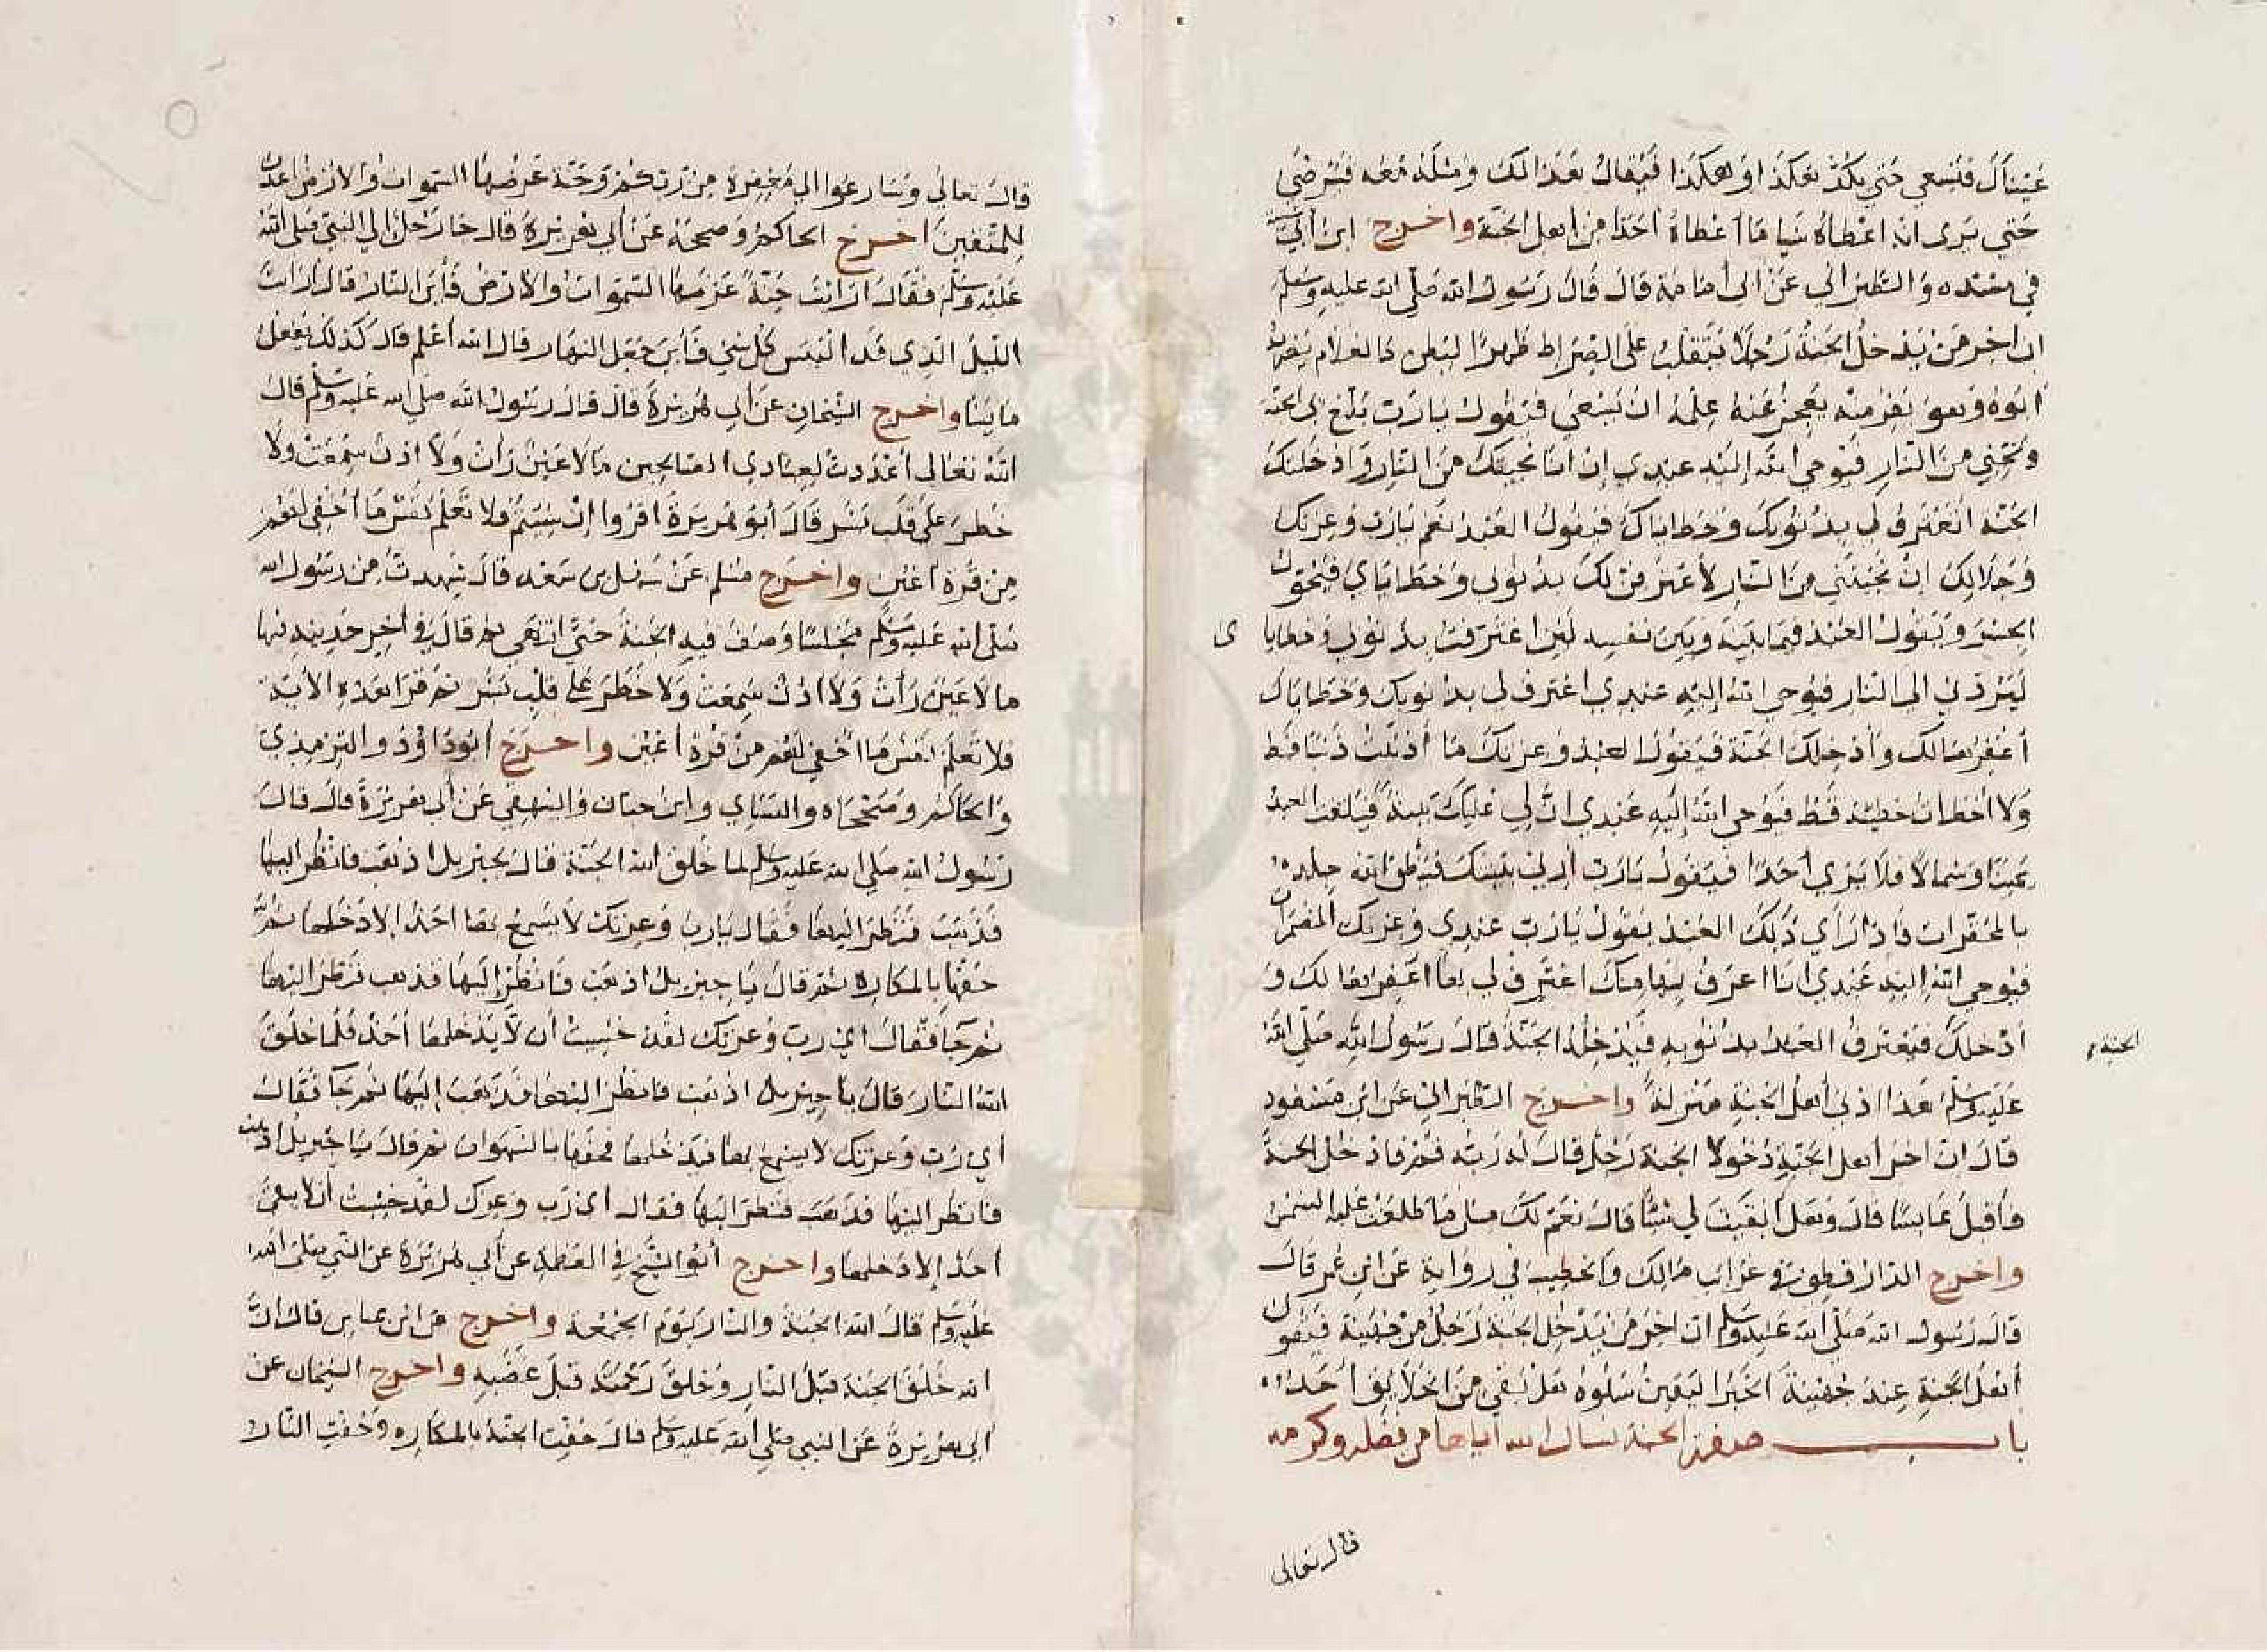 عيناك فتسعى حتى يكد هكذا او هكذا فيقال هذا لك ومثله معه فيرضى
حتى يرى انه اعطاه شيا ما أعطاه أحدا من اهل الجنة واخرج ابن أبي شيبة
في مسنده والطبراني عن ابى أمامة قال قال رسول الله صلى الله عليه وسلم
ان اخر من يدخل الجنة رجلا يتقلب على الصراط ظهرا لبطن كالغلام يضربه
ابوه وهو يفر منه يعجز عنه علمه ان يسعى فيقول يا رب بلغ بى الجنة
ونجني من النار فيوحي الله إليه عبدي إن انا نجيتك من النار وادخلتك
الجنة اتعترف لي بذنوبك وخطاياك فيقول العبد نعم يا رب وعزتك
وجلالك ان نجيتني من النار لأعترفن لك بذنوبي وخطاياي فيجوز
الجسر ويقول العبد فيما بينه وبين نفسه لئن اعترفت بذنوبي وخطايا ى
ليردني الى النار فيوحي الله إليه عبدي اعترف لى بذنوبك وخطاياك
أغفرها لك وأدخلك الجنة فيقول العبد وعزتك ما أذنبت ذنبا قط
ولا أخطات خطيئة قط فيوحي الله إليه عبدي ان لي عليك بينة فيلتفت العبد
يمينا وشمالا فلا يرى أحدا فيقول يا رب أرني بينتك فينطق الله جلده
بالمحقرات فاذا رأى ذلك العبد يقول يا رب عندي وعزتك المضمرات
فيوحي الله اليه عبدي انا اعرف بها منك اعترف لي بها أغفرها لك و
أدخلك فيعترف العبد بذنوبه فيدخله الجنة قال رسول الله صلى الله
الجنة
عليه وسلم هذا ادنى أهل الجنة منزلة واخرج الطبراني عن ابن مسعود
قال ان اخر أهل الجنة دخولا الجنة رجل قال له ربه قم فادخل الجنة
فأقبل عابسا قال وهل أبقيت لي شيئا قال نعم لك مثل ما طلعت عليه الشمس
واخرج الدارقطني في غرائب مالك والخطيب في رواية عن ابن عمر قال
قال رسول الله صلى الله عليه وسلم ان اخر من يدخل الجنة رجل من جهينة فيقول
أهل الجنة عند جهينة الخبر اليقين سلوه هل بقي من الخلايق أحد
باب صفة الجنة نسال الله اياها من فضله وكرمه
قال تعالى
قال تعالى وسارعوا الى مغفرة من ربكم وجنة عرضها السموات والارض اعدت
للمتقين اخرج الحاكم وصححه عن أبي هريرة قال جا رجل الى النبي صلى الله
عليه وسلم فقال ارايت جنة عرضها السموات والأرض فأين النار قال ارايت
الليل الذي قد البس كل شي فأين جعل النهار قال الله أعلم قال كذلك يفعل
ما يشا واخرج الشيخان عن أبي هريرة قال قال رسول الله صلى الله عليه وسلم قال
الله تعالى أعددت لعبادي الصالحين ما لا عين رأت ولا اذن سمعت ولا
خطر على قلب بشر قال أبو هريرة اقروا إن شيتم فلا تعلم نفس ما أخفي لهم
من قرة أعين واخرج مسلم عن سهل بن سعد قال شهدت من رسول الله
صلى الله عليه وسلم مجلسا وصف فيه الجنة حتى انتهى ثم قال في أخر حديثه فيها
ما لا عين رأت ولا اذن سمعت ولا خطر على قلب بشر ثم قرا هذه الأية
فلا تعلم نفس ما أخفي لهم من قرة أعين واخرج أبو داود والترمذي
والحاكم وصححاه والنساي وابن حبان والبيهقي عن أبي هريرة قال قال
رسول الله صلى الله عليه وسلم لما خلق الله الجنة قال يجبريل اذهب فانظر اليها
فذهب فنظر اليها فقال يا رب وعزتك لا يسمع بها احد إلا دخلها ثم
حفها بالمكاره ثم قال يا جبريل اذهب فانظر إليها فذهب فنظر اليها
ثم جا فقال اي رب وعزتك لقد خشيت ان لا يدخلها أحد فلما خلق
الله النار قال يا جبريل اذهب فانظر اليها فذهب إليها ثم جا فقال
أي رب وعزتك لا يسمع بها فيدخلها فحفها بالشهوات ثم قال يا جبريل اذهب
فانظر اليها فذهب فنظر اليها فقال اى رب وعزتك لقد خشيت أن لا يبقى
أحد إلا دخلها واخرج أبو الشيخ في العظمة عن أبي هريرة عن النبي صلى الله
عليه وسلم قال الله الجنة والنار يوم الجمعة واخرج عن ابن عباس قال ان
الله خلق الجنة قبل النار وخلق رحمته قبل غضبه واخرج الشيخان عن
ابى هريرة عن النبي صلى الله عليه وسلم قال حفت الجنة بالمكاره وحفت النار